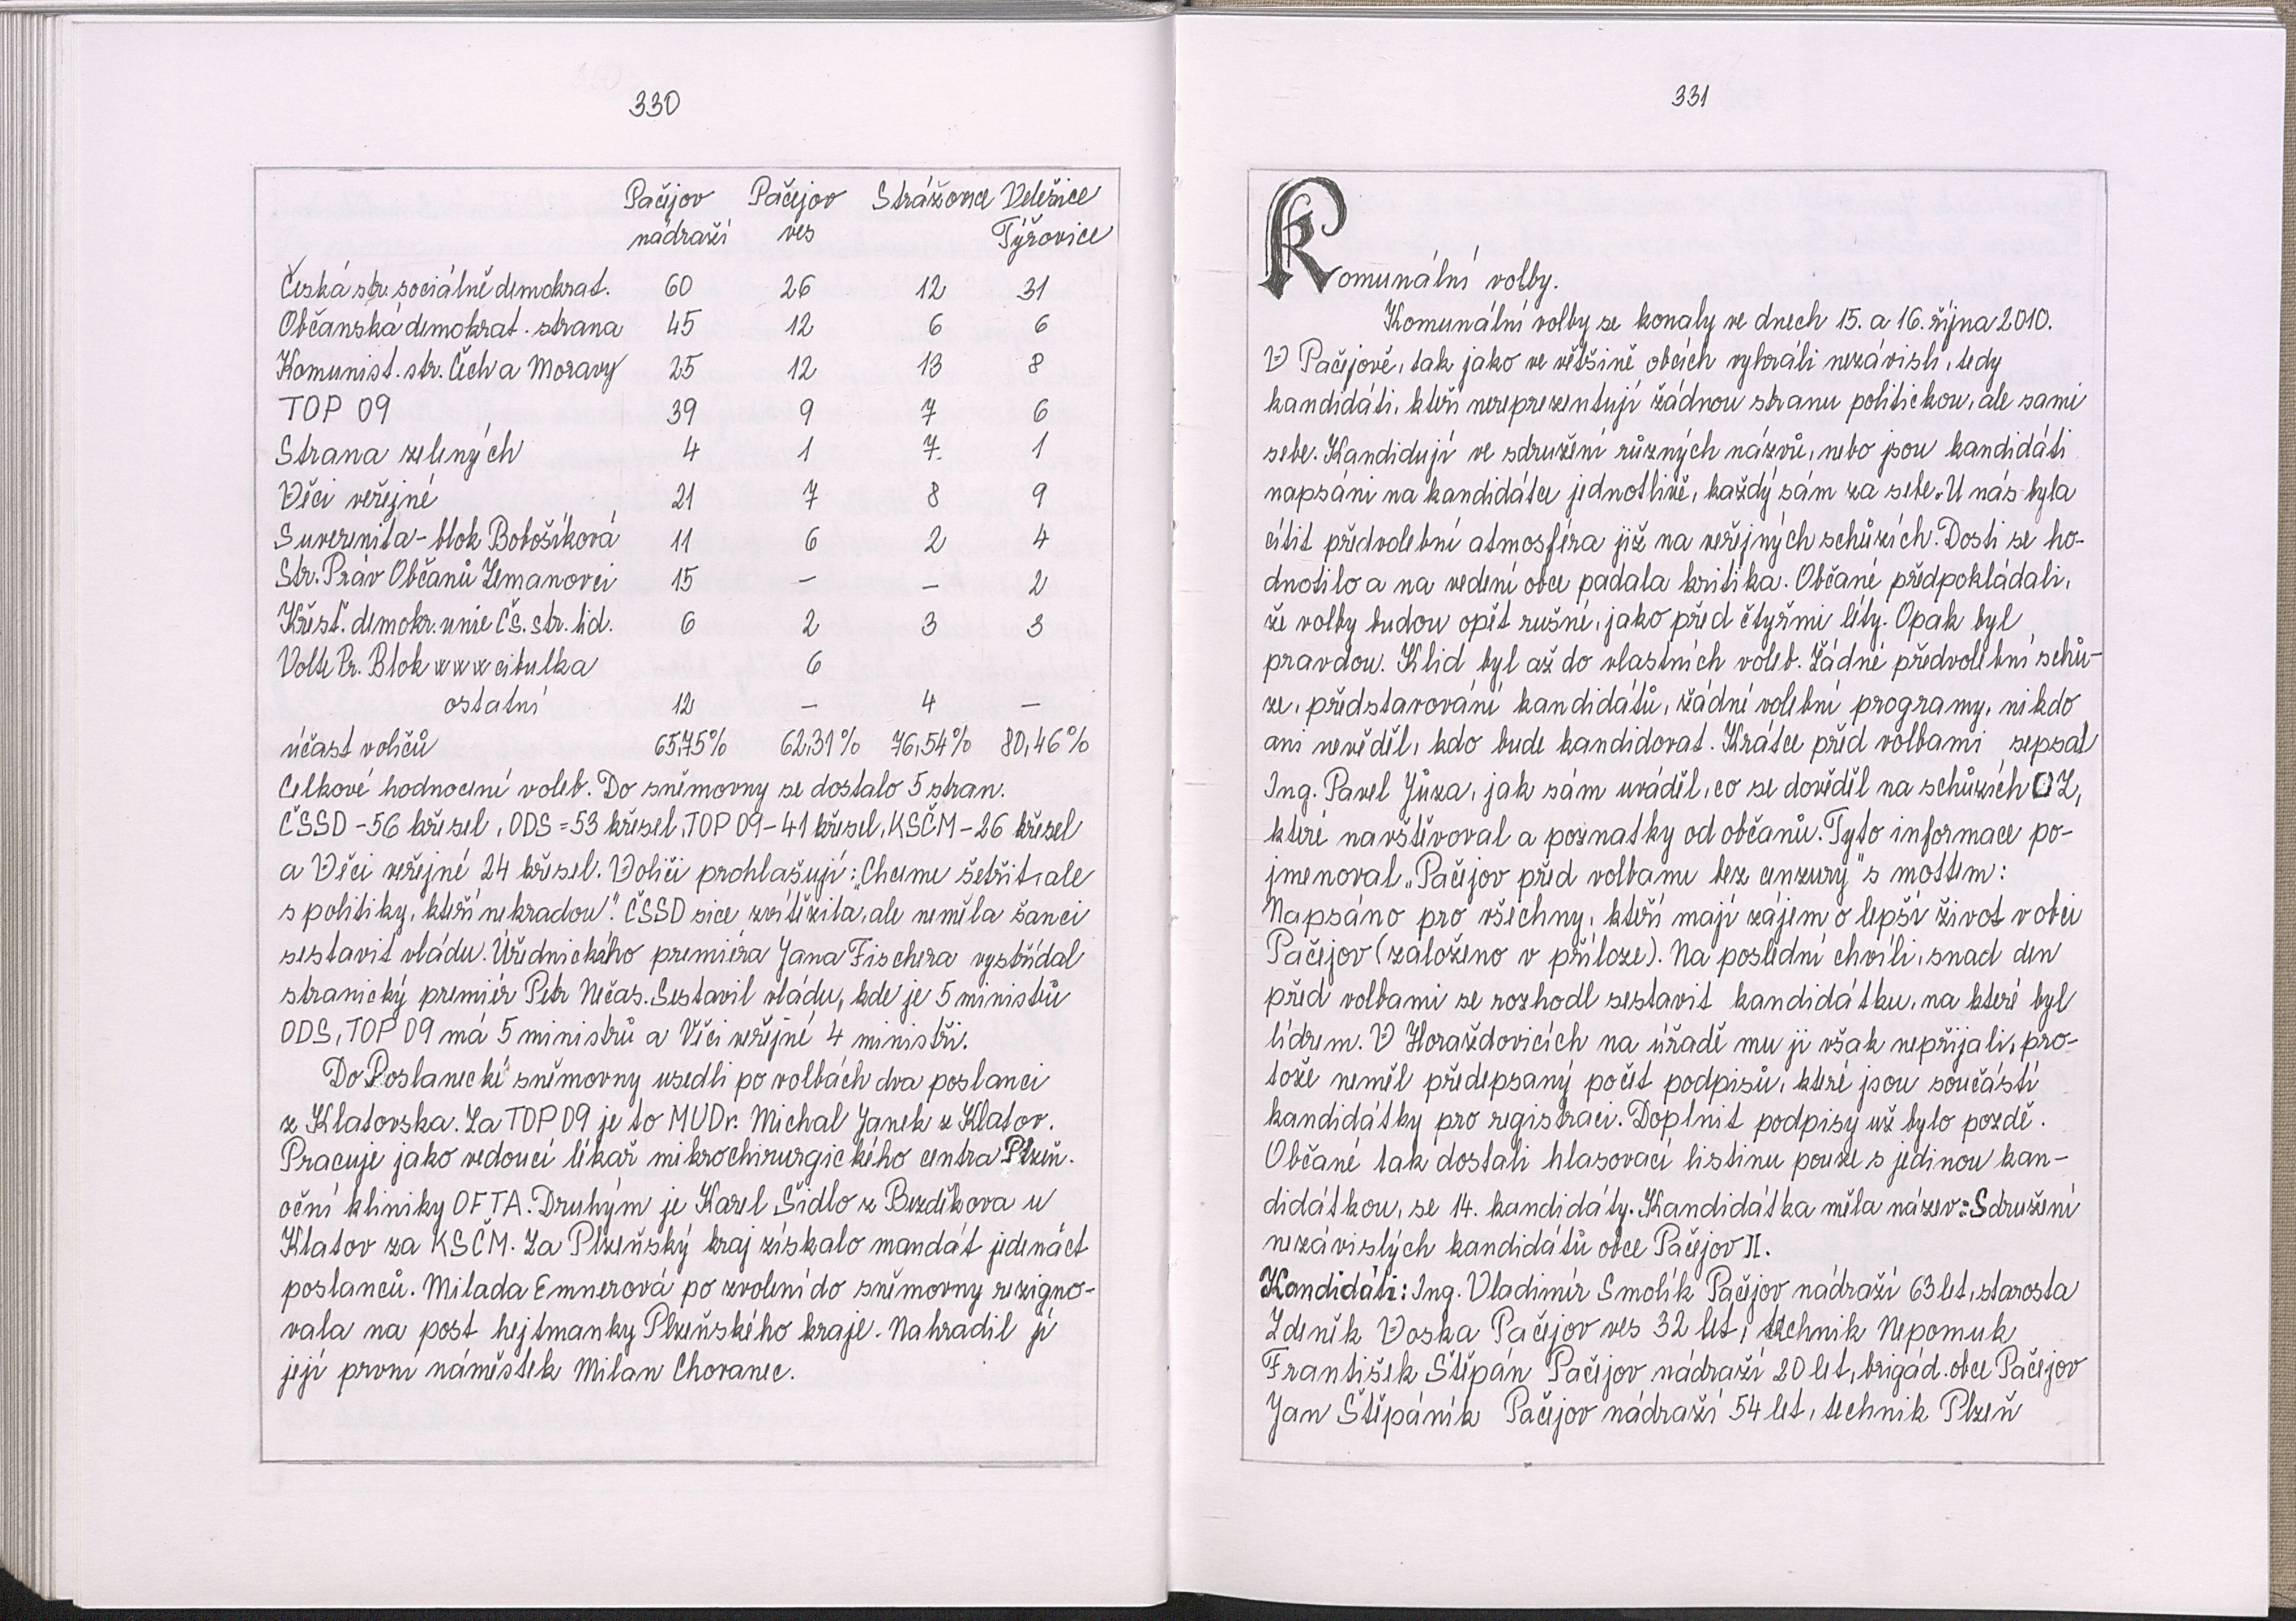 330
Pačejov Pačejov Strážovice Velešice
nádraží ves Týřovice
Česká str. sociálně demokrat. 60 26 12 31
Občanská demokrat. strana 45 12 6 6
Komunist. str. Čech a Moravy 25 12 13 8
TOP 09 39 9 7 6
Strana zelených 4 1 7 1
Věci veřejné 21 7 8 9
Suverenita - blok Bobošíková 11 6 2 4
Str. Práv Občanů Zemanovci 15 — — 2
Křesť. demokr. unie Čs. str. lid. 6 2 3 3
Volte Pr. Blok www cibulka 6
ostatní 12 — 4 —
účast voličů 65,75% 62,31% 76,54% 80,46%
Celkové hodnocení voleb. Do sněmovny se dostalo 5 stran.
ČSSD - 56 křesel, ODS = 53 křesel, TOP 09 - 41 křesel, KSČM - 26 křesel
a Věci veřejné 24 křesel. Voliči prohlašují: „Chceme šetřit, ale
s politiky, kteří nekradou". ČSSD sice zvítězila, ale neměla šanci
sestavit vládu. Úřednického premiéra Jana Fischera vystřídal
stranický premiér Petr Nečas. Sestavil vládu, kde je 5 ministrů
ODS, TOP 09 má 5 ministrů a Věci veřejné 4 ministři.
Do Poslanecké sněmovny usedli po volbách dva poslanci
z Klatovska. Za TOP 09 je to MUDr. Michal Janek z Klatov.
Pracuje jako vedoucí lékař mikrochirurgického centra Plzeň.
oční kliniky OFTA. Druhým je Karel Šidlo z Bezděkova u
Klatov za KSČM. Za Plzeňský kraj získalo mandát jedenáct
poslanců. Milada Emnerová po zvolení do sněmovny rezigno-
vala na post hejtmanky Plzeňského kraje. Nahradil ji
její první náměstek Milan Chovanec.
331
Komunální volby.
Komunální volby se konaly ve dnech 15. a 16. října 2010.
V Pačejově, tak jako ve většině obcích vyhráli nezávislí, tedy
kandidáti, kteří nereprezentují žádnou stranu politickou, ale sami
sebe. Kandidují ve sdružení různých názvů, nebo jsou kandidáti
napsáni na kandidátce jednotlivě, každý sám za sebe. U nás byla
cítit předvolební atmosféra již na veřejných schůzích. Dosti se ho-
dnotilo a na vedení obce padala kritika. Občané předpokládali,
že volby budou opět rušné, jako před čtyřmi léty. Opak byl
pravdou. Klid byl až do vlastních voleb. Žádné předvolební schů-
ze, představování kandidátů, žádné volební programy, nikdo
ani nevěděl, kdo bude kandidovat. Krátce před volbami sepsal
Ing. Pavel Jůza, jak sám uváděl, co se dověděl na schůzích OZ,
které navštěvoval a poznatky od občanů. Tyto informace po-
jmenoval „Pačejov před volbami bez cenzury" s mottem:
Napsáno pro všechny, kteří mají zájem o lepší život v obci
Pačejov (založeno v příloze). Na poslední chvíli, snad den
před volbami se rozhodl sestavit kandidátku, na které byl
lídrem. V Horažďovicích na úřadě mu ji však nepřijali, pro-
tože neměl předepsaný počet podpisů, které jsou součástí
kandidátky pro registraci. Doplnit podpisy už bylo pozdě.
Občané tak dostali hlasovací listinu pouze s jedinou kan-
didátkou, se 14. kandidáty. Kandidátka měla název: Sdružení
nezávislých kandidátů obce Pačejov II.
Kandidáti: Ing. Vladimír Smolík Pačejov nádraží 63 let, starosta
Zdeněk Voska Pačejov ves 32 let, technik Nepomuk
František Štěpán Pačejov nádraží 20 let, brigád. obce Pačejov
Jan Štěpáník Pačejov nádraží 54 let, technik Plzeň